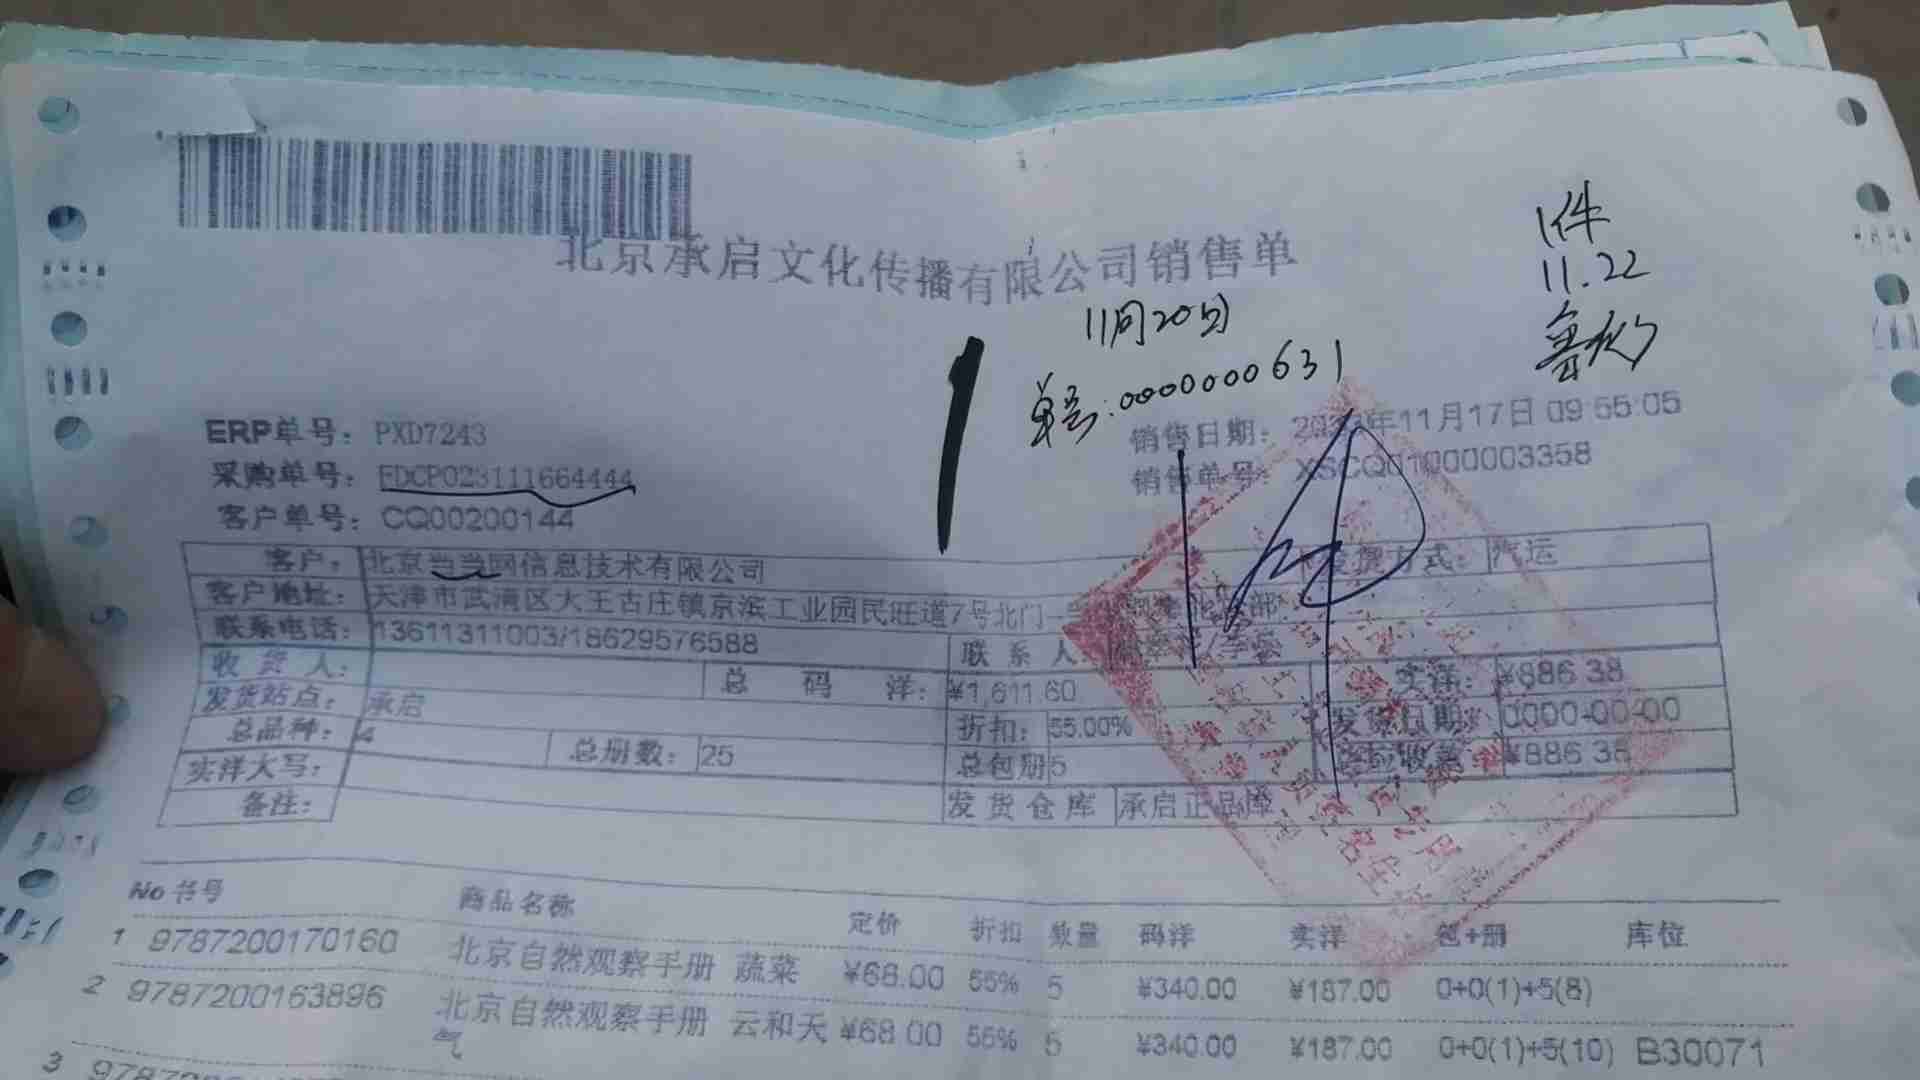 北京承启文化传播有限公司销售单
1件
11.22
11月20日
单号:0000000631
ERP单号: PXD7243
销售日期: 2023年11月17日 09:55:05
采购单号: FDCP023111664444
销售单号: XSCQ01000003358
客户单号: CQ00200144
客户: 北京当当网信息技术有限公司 发货方式: 汽运
客户地址: 天津市武清区大王古庄镇京滨工业园民旺道7号北门
联系电话: 13611311003/18629576588 联系人:
收货人: 总码洋: ¥1,611.60 实洋: ¥886.38
发货站点: 承启 折扣: 55.00% 发货日期: 0000-00-00
总品种: 4 总册数: 25 总包册 5 ¥886.38
实洋大写:
备注: 发货仓库 承启正品库
No 书号 商品名称 定价 折扣 数量 码洋 实洋 包+册 库位
1 9787200170160 北京自然观察手册 蔬菜 ¥68.00 55% 5 ¥340.00 ¥187.00 0+0(1)+5(8)
2 9787200163896 北京自然观察手册 云和天 ¥68.00 55% 5 ¥340.00 ¥187.00 0+0(1)+5(10) B30071
气
3